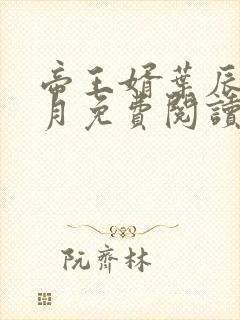 帝王婿葉辰
月免費閱讀
阮齊林